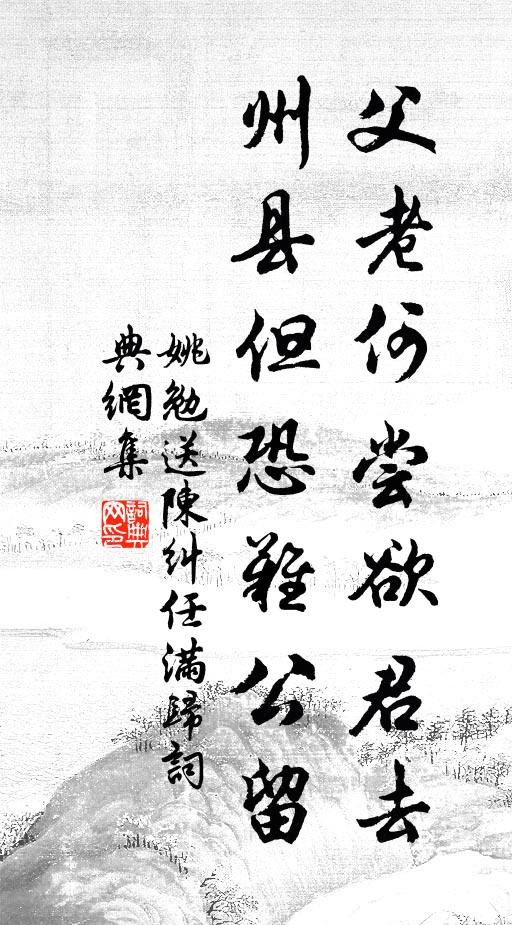 父老何尝欲君去
州县但恐难公留
姚勉送陳糾任滿歸詞
典網集
詞典
网印